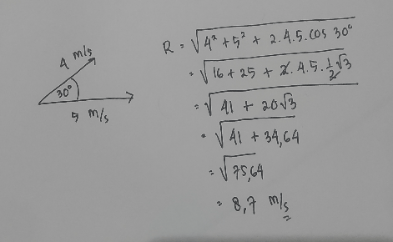 4 m/s
30°
5 m/s
R = √4² + 5² + 2.4.5.cos 30°
= √16 + 25 + 2.4.5.½√3
= √41 + 20√3
= √41 + 34,64
= √75,64
= 8,7 m/s